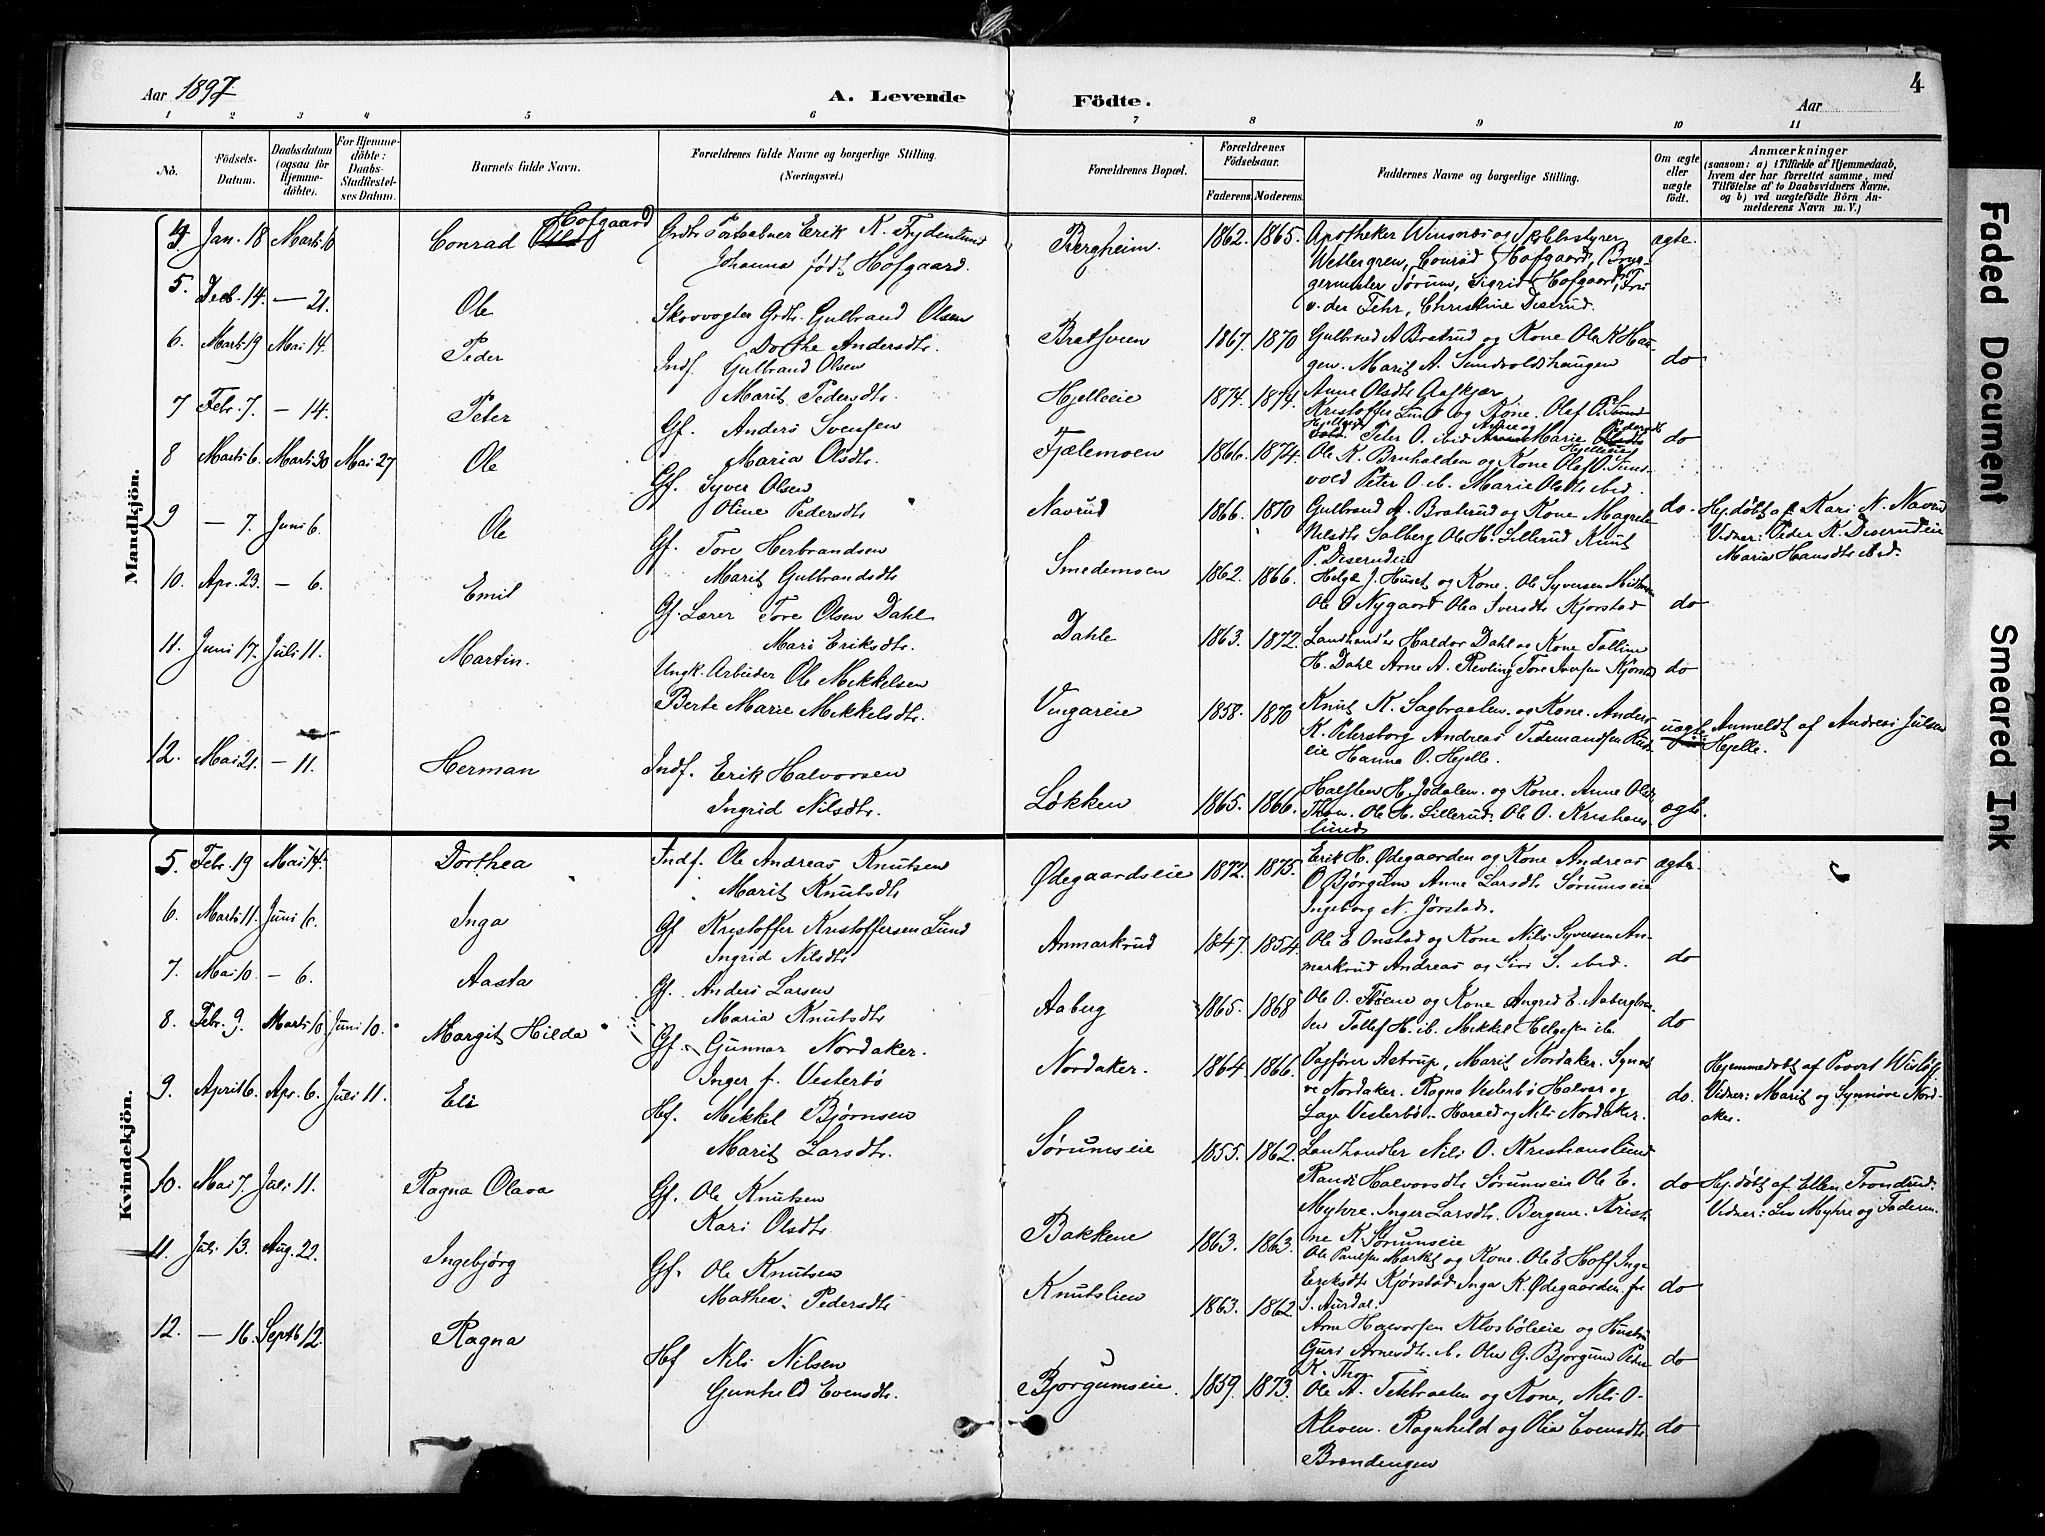 Aar 1897
A. Levende
Födte.
Aar
4
1 2 3 4 5 6 7 8 9 10 11
No.
Födsels-
Datum.
Daabsdatum
(ogsaa för
Hjemme-
döbte).
For Hjemme-
döbte:
Daabs-
Stadfæstel-
ses Datum.
Barnets fulde Navn.
Forældrenes fulde Navne og borgerlige Stilling.
(Næringsvei.)
Forældrenes Bopæl.
Forældrenes
Födselsaar.
Faderens.
Moderens.
Faddernes Navne og borgerlige Stilling.
Om ægte
eller
uægte
födt.
Anmærkninger
(saasom: a) i Tilfælde af Hjemmedaab,
hvem der har forrettet samme, med
Tilföielse af to Daabsvidners Navne,
og b) ved uægtefödte Börn An-
melderens Navn m. V.)
Mandkjön.
4 Jan. 18 Marts 6 Conrad Hofgaard Erik K. Frydenlund
Johanna født Hofgaard.
Bergheim. 1862. 1865. Apotheker Winsnes og
Wettergren, Conrad Hofgaard, Bryg-
germester Sørum, Sigrid Hofgaard, Fru
v. der Fehr, Christine Diserud.
ægte.
5. Decb. 14. — 21. Ole Skovvogter Grdbr. Gulbrand Olsen
Dorthe Andersdtr.
1867. 1870 Gulbrand A Bratrud og Kone Ole K Hau-
gen. Marit A. Sundvoldshaugen do
6. Marts 19 Mai 14. Peder Indf. Gulbrand Olsen
Marit Pedersdtr.
Hjelleeie 1874. 1874. Anne Olsdtr
Kristoffer Lund og Kone. Olaf
Peter O. ibid Marie do
7 Febr. 7. — 14. Peter Gf. Anders Svensen
Maria Olsdtr.
Fjælemoen 1866. 1874. Ole K. Bruhalden og Kone Olaf O. Sund-
vold Peter O. ib. Marie Olsdtr ibid.
8 Marts 6. Marts 30 Mai 27 Ole Gf. Syver Olsen
Oline Pedersdtr.
Navrud 1866. 1870 Gulbrand A. Braterud og Kone Magrete
Nilsdtr Solberg Ole H. Lillerud Knut
P. Diserudeie
do. Hj.døbt af Kari N. Navrud
Vidner: Peder K. Diserudeie
Maria Hansdtr ibid.
9 — 7. Juni 6. Ole Gf. Tore Herbrandsen
Marit Gulbrandsdtr
Smedemoen 1862. 1866. Helge J. Huset og Kone. Ole Syversen
Ole O Nygaard Olia Iversdtr Kjørstad do
10. Apr. 23. — 6. Emil Gf. Lærer Tore Olsen Dahl
Mari Eriksdtr.
Dahle 1863. 1872. Landhandler Haldor Dahl og Kone Tolline
H. Dahl Arne A. Revling Tore Iversen Kjørstad do
11. Juni 17. Juli 11. Martin. Ungk. Arbeider Ole Mikkelsen
Berte Marie Mikkelsdtr.
Vingareie 1858. 1870 Knut K. Sagbraaten og Kone. Anders
K. Petersborg Andreas Tidemandsen
eie Hanna O. Hjelle.
uægte Anmeldt af Andreas Julsen
Hjelle.
12. Mai 21. — 11. Herman Indf. Erik Halvorsen
Ingrid Nilsdtr.
Løkken 1865. 1866. Halsten H. Jødalen. og Kone. Anne Olsdtr
Thon. Ole H. Lillerud. Ole O. Kristians-
lund
ægte.
Kvindekjön.
5. Febr. 19 Mai 14. Dorthea Indf. Ole Andreas Knutsen
Marit Knutsdtr
Ødegaardseie 1872. 1875. Erik H. Ødegaarden og Kone Andreas
O Bjørgum Anne Larsdtr Sørumseie
Ingeborg N. Jørstad.
ægte.
6. Marts 11. Juni 6. Inga Gf Kristoffer Kristoffersen Lund
Ingrid Nilsdtr
Anmarkrud 1847. 1854. Ole E Onstad og Kone Nils Syversen An-
markrud Andreas og Siri S. ibid. do
7. Mai 10. — 6. Aasta Gf. Anders Larsen
Maria Knutsdtr
Aaberg 1865. 1868 Ole O. Fløene og Kone Ingrid E. Aabergbra-
ten Tollef H. ib. Mikkel Helgesen ib. do
8. Febr. 9. Marts 10 Juni 10. Margit Hilda Gf. Gunnar Nordaker.
Inger f. Vesterbø
Nordaker. 1864. 1866. Sagfører Astrup, Marit Nordaker. Synnø-
ve Nordaker. Ragna Vesterbø Halvor og
Lage Vesterbø. Harald og Nils Nordaker.
do. Hjemmedøbt af Provst Wisløff
Vidner: Marit og Synnøve Nord-
aker.
9. April 6. Apr. 6. Juli 11. Eli Hf. Mikkel Bjørnsen
Marit Larsdtr.
Sørumseie 1855. 1862. Landhandler Nils O. Kristianslund
Randi Halvorsdtr Sørumseie Ole E.
Myhre. Inger Larsdtr. Bergene. Kristi-
ne K. Sørumseie
do Hj.døbt af Ellen Trondrud.
Vidner: Liv Myhre og Faderen.
10. Mai 7. Juli 11. Ragna Olava Gf. Ole Knutsen
Kari Olsdtr.
Bakkene 1863. 1863. Ole Paulsen og Kone. Ole E Hoff Inga
Eriksdtr Kjørstad Inga K. Ødegaarden fra
S. Aurdal. do
11. Juli 13. Aug. 22. Ingebjørg Gf. Ole Knutsen
Mathea. Pedersdtr
Knutslien 1863. 1862 Arne Halvorsen Klosbøleeie og Hustru
Guri Arnesdtr ib. Olia G. Bjørgum Peder
K. Thon do
12. — 16. Septb 12. Ragna Hf Nils Nilsen
Gunhild Evensdtr.
Bjørgumseie. 1859. 1873. Ole A. og Kone, Nils O.
Kleven. Ragnhild og Olia Evensdtr
Brændengen
do
Faded Document
Smeared Ink